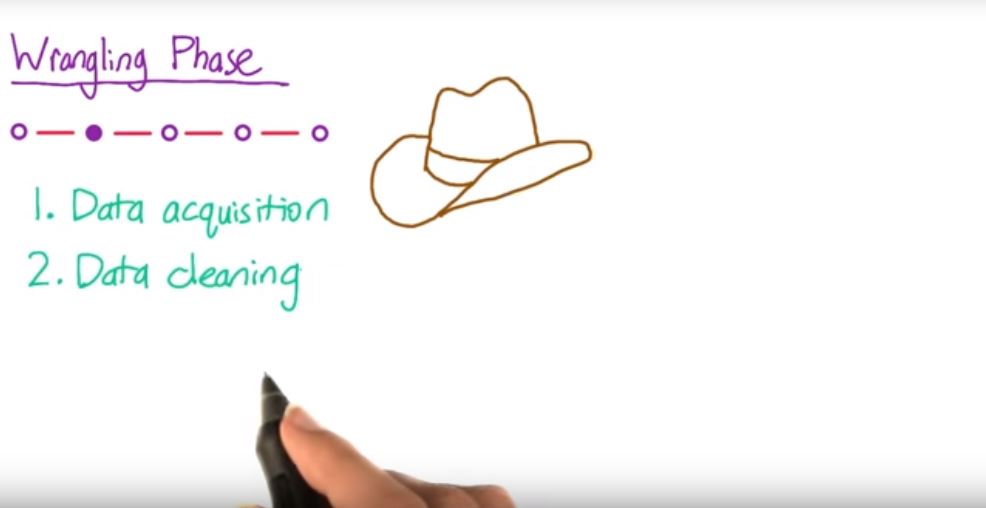 Wrangling Phase
1. Data acquisition
2. Data cleaning